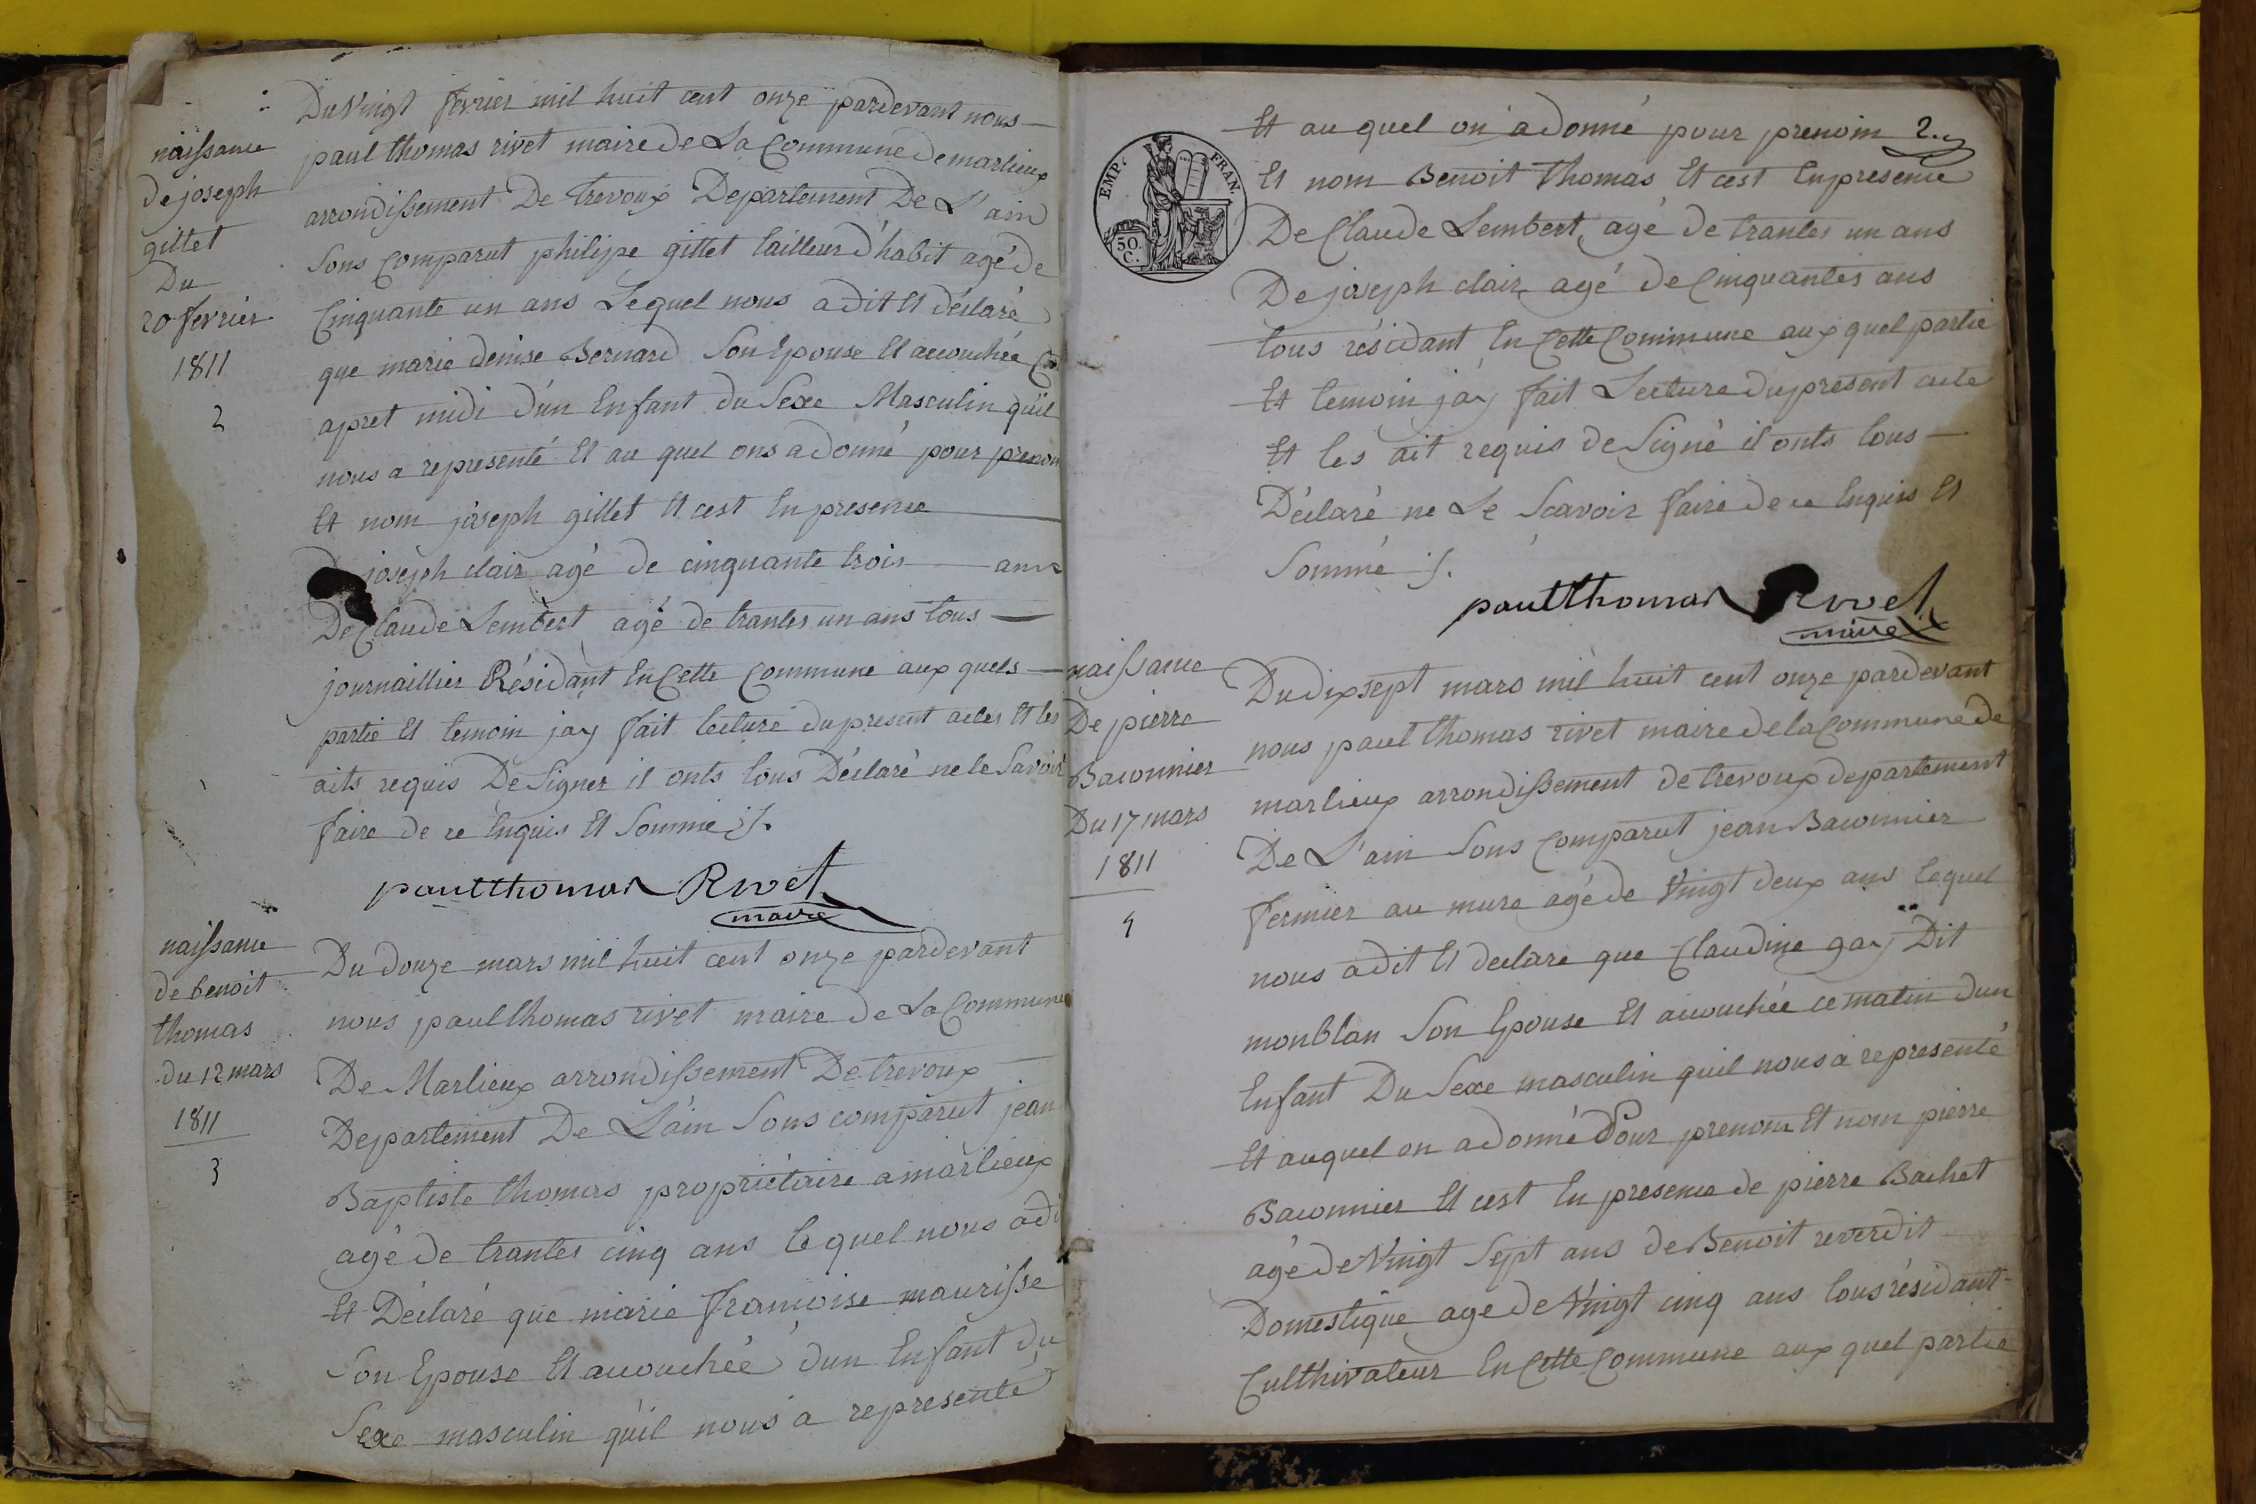 naissance
de joseph
gillet
Du
20 fevrier
1811
2
Du Vingt fevrier mil huit cent onze pardevant nous
paul thomas rivet maire de La Commune de marlieux
arrondissement De trevoux Departement De L'ain
Sons Comparut philipe gillet tailleur d'habit agé de
Cinquante un ans Lequel nous a dit Et déclaré
que marie denise Bernard Son Epouse Et accouchée
apret midi d'un Enfant du Sexe Masculin qu'il
nous a representé Et au quel ons a donné pour prenom
Et nom joseph gillet Et cest En presence
joseph clair agé de cinquante trois ans
De Claude Lembert agé de trantes un ans tous
journaillier Résidant En Cette Commune aux quels
partie Et temoin jay fait lecture du present actes Et les
aits requis De Signer il onts tous Déclaré ne le Savoir
faire de ce Enquis Et Sommé ./.
paul thomas Rivet
maire
naissance
de benoit
thomas
du 12 mars
1811
3
Du douze mars mil huit cent onze pardevant
nous paul thomas rivet maire de La Commune
De Marlieux arrondissement De trevoux
Departement De L'ain Sons comparut jean
Baptiste thomas propriétaire a marlieux
agé de trantes cinq ans lequel nous a di
Et Déclaré que marie francoise maurisse
Son Epouse Et accouchée d'un Enfant du
Sexe masculin qu'il nous a representé
EMP. FRAN.
50.
C.
2.
Et au quel on a donné pour prenom
Et nom Benoit thomas Et cest En presence
De Claude Lembert agé de trantes un ans
De joseph clair agé de Cinquantes ans
tous résidant En Cette Commune aux quel partie
Et temoin jay fait Lecture du present acte
Et les ait requis de Signé il onts tous
Déclaré ne Le Scavoir faire de ce Enquis Et
Sommé ./.
paul thomas Rivet
maire
naissance
De pierre
Baconnier
Du 17 mars
1811
4
Du dix sept mars mil huit cent onze pardevant
nous paul thomas rivet maire de la Commune de
marlieux arrondissement de trevoux departement
De L'ain Sons Comparut jean Baconnier
fermier au mure agé de Vingt deux ans lequel
nous a dit Et declare que Claudine gay Dit
monblan Son Epouse Et accouchée ce matin dun
Enfant Du Sexe masculin quil nous a representé
Et auquel on a donné Pour prenom Et nom pierre
Baconnier Et cest En presence de pierre Bachet
agé de Vingt Sept ans de Benoit reverdit
Domestique age de Vingt cinq ans tous résidant
Culthivateur En Cette Commune aux quel partie